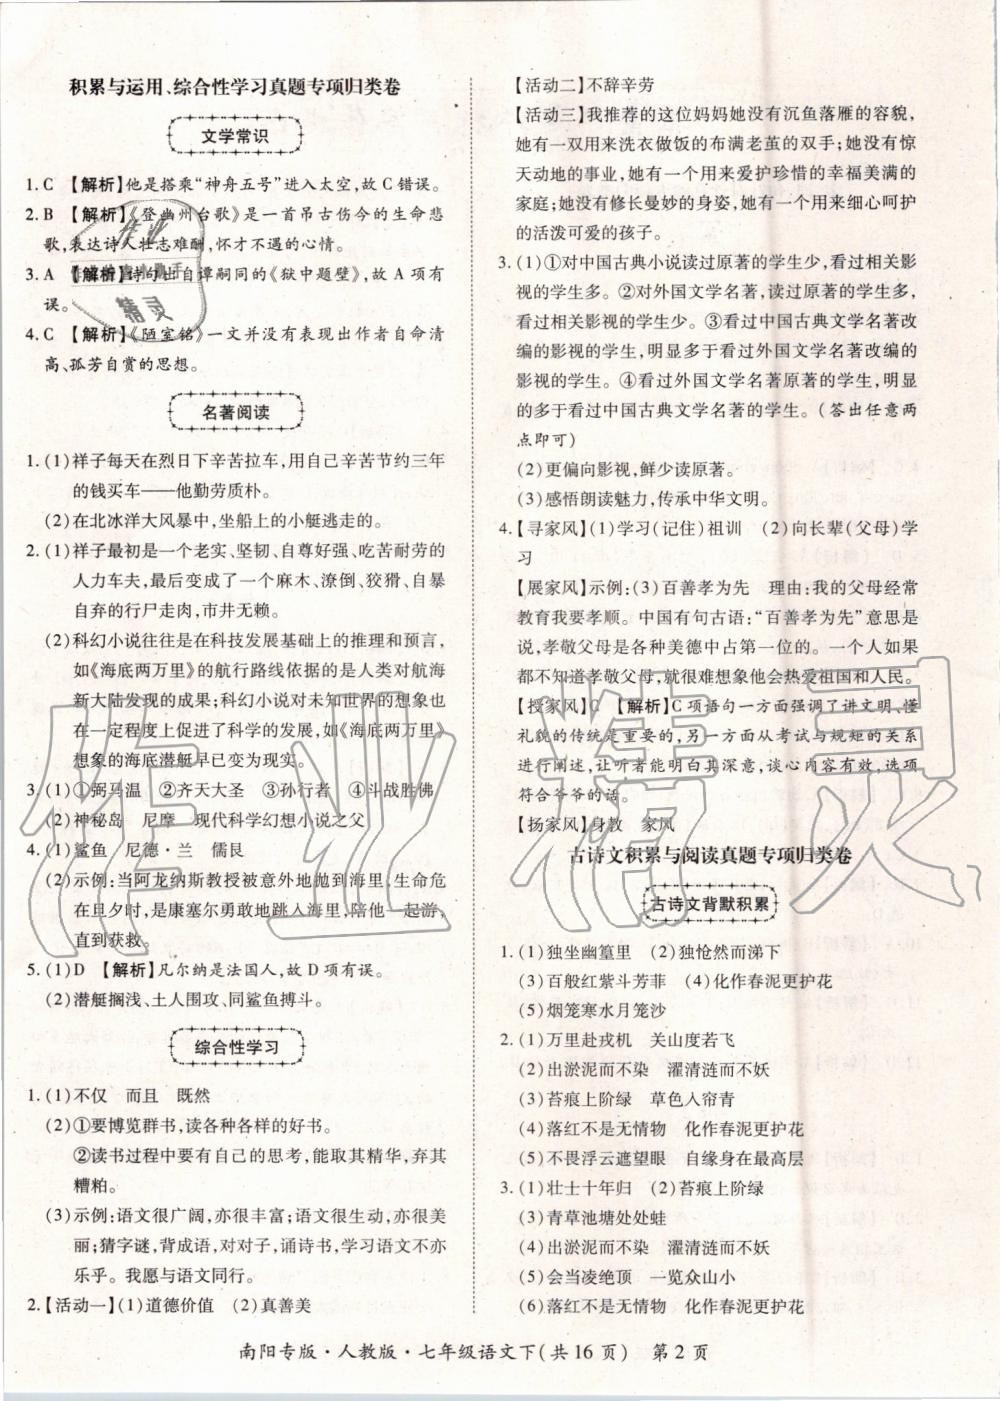 积累与运用、综合性学习真题专项归类卷
文学常识
1. C 【解析】他是搭乘“神舟五号”进入太空,故 C 错误。
2. B 【解析】《登幽州台歌》是一首吊古伤今的生命悲
歌,表达诗人壮志难酬,怀才不遇的心情。
3. A 【解析】诗句出自谭嗣同的《狱中题壁》,故 A 项有
误。
4. C 【解析】《陋室铭》一文并没有表现出作者自命清
高、孤芳自赏的思想。
名著阅读
1. (1)祥子每天在烈日下辛苦拉车,用自己辛苦节约三年
的钱买车——他勤劳质朴。
(2)在北冰洋大风暴中,坐船上的小艇逃走的。
2. (1)祥子最初是一个老实、坚韧、自尊好强、吃苦耐劳的
人力车夫,最后变成了一个麻木、潦倒、狡猾、自暴
自弃的行尸走肉,市井无赖。
(2)科幻小说往往是在科技发展基础上的推理和预言,
如《海底两万里》的航行路线依据的是人类对航海
新大陆发现的成果;科幻小说对未知世界的想象也
在一定程度上促进了科学的发展,如《海底两万里》
想象的海底潜艇早已变为现实。
3. (1)①弼马温 ②齐天大圣 ③孙行者 ④斗战胜佛
(2)神秘岛 尼摩 现代科学幻想小说之父
4. (1)鲨鱼 尼德·兰 儒艮
(2)示例:当阿龙纳斯教授被意外地抛到海里,生命危
在旦夕时,是康塞尔勇敢地跳人海里,陪他一起游,
直到获救。
5. (1)D 【解析】凡尔纳是法国人,故 D 项有误。
(2)潜艇搁浅、土人围攻、同鲨鱼搏斗。
综合性学习
1. (1)不仅 而且 既然
(2)①要博览群书,读各种各样的好书。
②读书过程中要有自己的思考,能取其精华,弃其
糟粕。
(3)示例:语文很广阔,亦很丰富;语文很生动,亦很美
丽;猜字谜,背成语,对对子,诵诗书,学习语文不亦
乐乎。我愿与语文同行。
2. 【活动一】(1)道德价值 (2)真善美
【活动二】不辞辛劳
【活动三】我推荐的这位妈妈她没有沉鱼落雁的容貌,
她有一双用来洗衣做饭的布满老茧的双手;她没有惊
天动地的事业,她有一个用来爱护珍惜的幸福美满的
家庭;她没有修长曼妙的身姿,她有一个用来细心呵护
的活泼可爱的孩子。
3. (1)①对中国古典小说读过原著的学生少,看过相关影
视的学生多。②对外国文学名著,读过原著的学生多,
看过相关影视的学生少。③看过中国古典文学名著改
编的影视的学生,明显多于看过外国文学名著改编的
影视的学生。④看过外国文学名著原著的学生,明显
的多于看过中国古典文学名著的学生。(答出任意两
点即可)
(2)更偏向影视,鲜少读原著。
(3)感悟朗读魅力,传承中华文明。
4. 【寻家风】(1)学习(记住)祖训 (2)向长辈(父母)学
习
【展家风】示例:(3)百善孝为先 理由:我的父母经常
教育我要孝顺。中国有句古语:“百善孝为先”意思是
说,孝敬父母是各种美德中占第一位的。一个人如果
都不知道孝敬父母,就很难想象他会热爱祖国和人民。
【授家风】C 【解析】C 项语句一方面强调了讲文明、懂
礼貌的传统是重要的,另一方面从考试与规矩的关系
进行阐述,让听者能明白其深意,谈心内容有效,选项
符合爷爷的话。
【扬家风】身教 家风
古诗文积累与阅读真题专项归类卷
古诗文背默积累
1. (1)独坐幽篁里 (2)独怆然而涕下
(3)百般红紫斗芳菲 (4)化作春泥更护花
(5)烟笼寒水月笼沙
2. (1)万里赴戎机 关山度若飞
(2)出淤泥而不染 濯清涟而不妖
(3)苔痕上阶绿 草色人帘青
(4)落红不是无情物 化作春泥更护花
(5)不畏浮云遮望眼 自缘身在最高层
3. (1)壮士十年归 (2)苔痕上阶绿
(3)青草池塘处处蛙
(4)出淤泥而不染 濯清涟而不妖
(5)会当凌绝顶 一览众山小
(6)落红不是无情物 化作春泥更护花
南阳专版·人教版·七年级语文下(共 16 页) 第 2 页
作业精灵